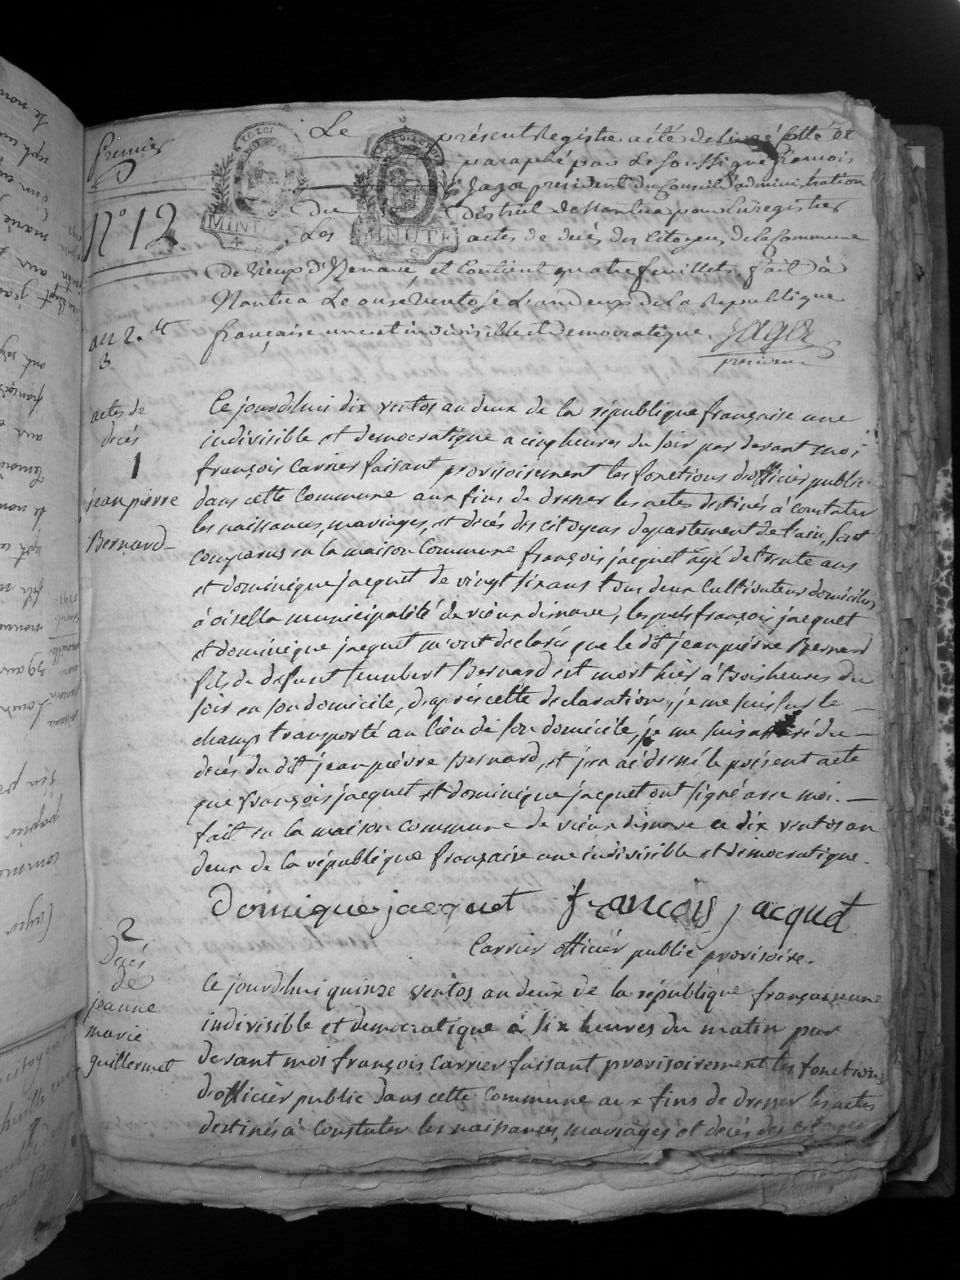 premier
Le présent Registre a été délivré cotté et
paraphé par Le Soussigné francois
Jagot président du Conseil d'administration
N.º 12
du district de Nantua pour Enregistrer
MINUTE
MINUTE
Les actes de decès des Citoyens de La Commune
de Vieux d'Izenave, et Contient quatre feuillets. fait à
Nantua Le onze Ventose L'an deux de La Republique
an 2. et
3
française une et indivisible et democratique. Jagot
président
actes de
decès
1
jean pierre
Bernard
Ce jourdhui dix ventos an deux de la république française une
indivisible et democratique a cinq heures du soir par devant moi
françois Carrier faisant provisoirement les fonctions d'officier public
dans cette Commune aux fins de dresser les actes destinés à constater
les naissances, mariages, et decés des citoyens departement de l'ain, sont
comparus en la maison Commune françois jacquet agé de trente ans
et dominique jacquet de vingt six ans tous deux Cultivateurs domiciliés
à oisella municipalité de vieux disnave, lesquels françois jacquet
et dominique jacquet m'ont declaré que le dit jean pierre Bernard
fils de defunt humbert Bernard est mort hier à trois heures du
soir en son domicile, daprés cette declaration, je me suis sur le
champ transporté au lieu de son domicile, je me suis assuré du
decés du dit jean pièvre Bernard, et j'en ai dressé le présent acte
que françois jacquet et dominique jacquet ont signé avec moi.
fait en la maison commune de vieux disnave ce dix ventos an
deux de la république française une indivisible et democratique.
Dominique jacquet francois jacquet
Carrier officiér public provisoire.
2
Decés
de
jeanne
marie
guillermet
Ce jourdhui quinze ventos an deux de la république française une
indivisible et democratique à six heures du matin par
devant moi françois Carrier faisant provisoirement les fonctions
d'officièr public dans cette Commune aux fins de dresser les actes
destinés à Constater les naissances, mariages et decés des citoyens